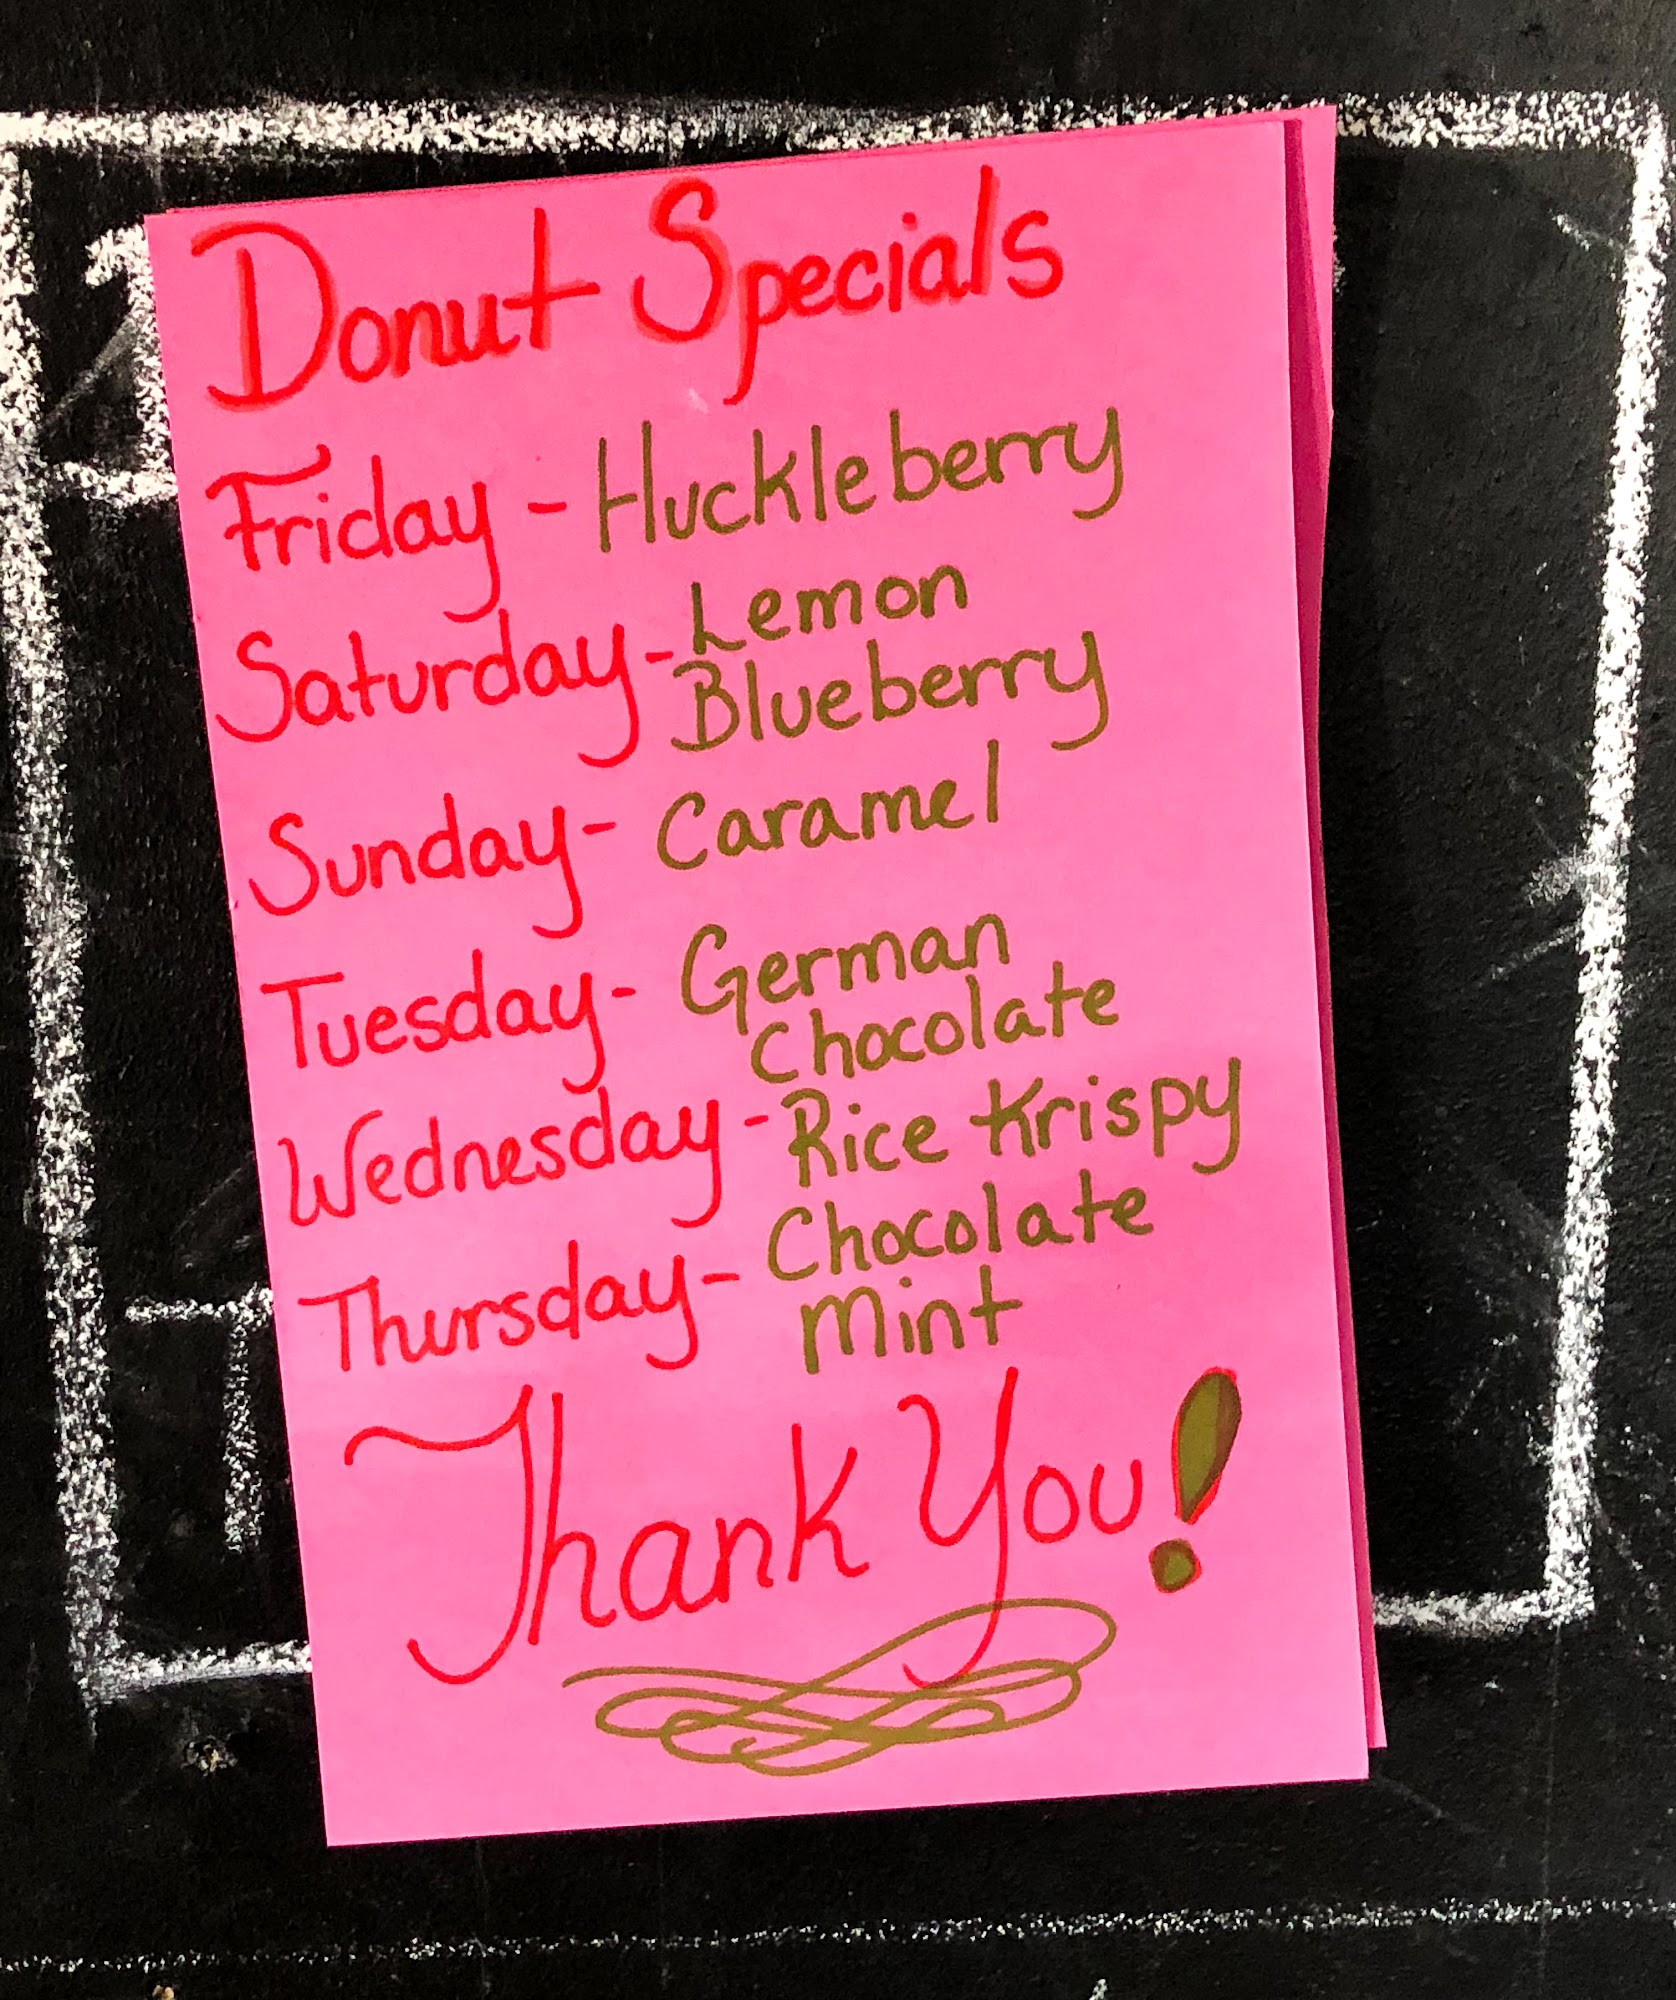 Donut Specials
Friday - Huckleberry
Saturday - Lemon
Blueberry
Sunday - Caramel
Tuesday - German
Chocolate
Wednesday - Rice Krispy
Thursday - Chocolate
Mint
Thank You!